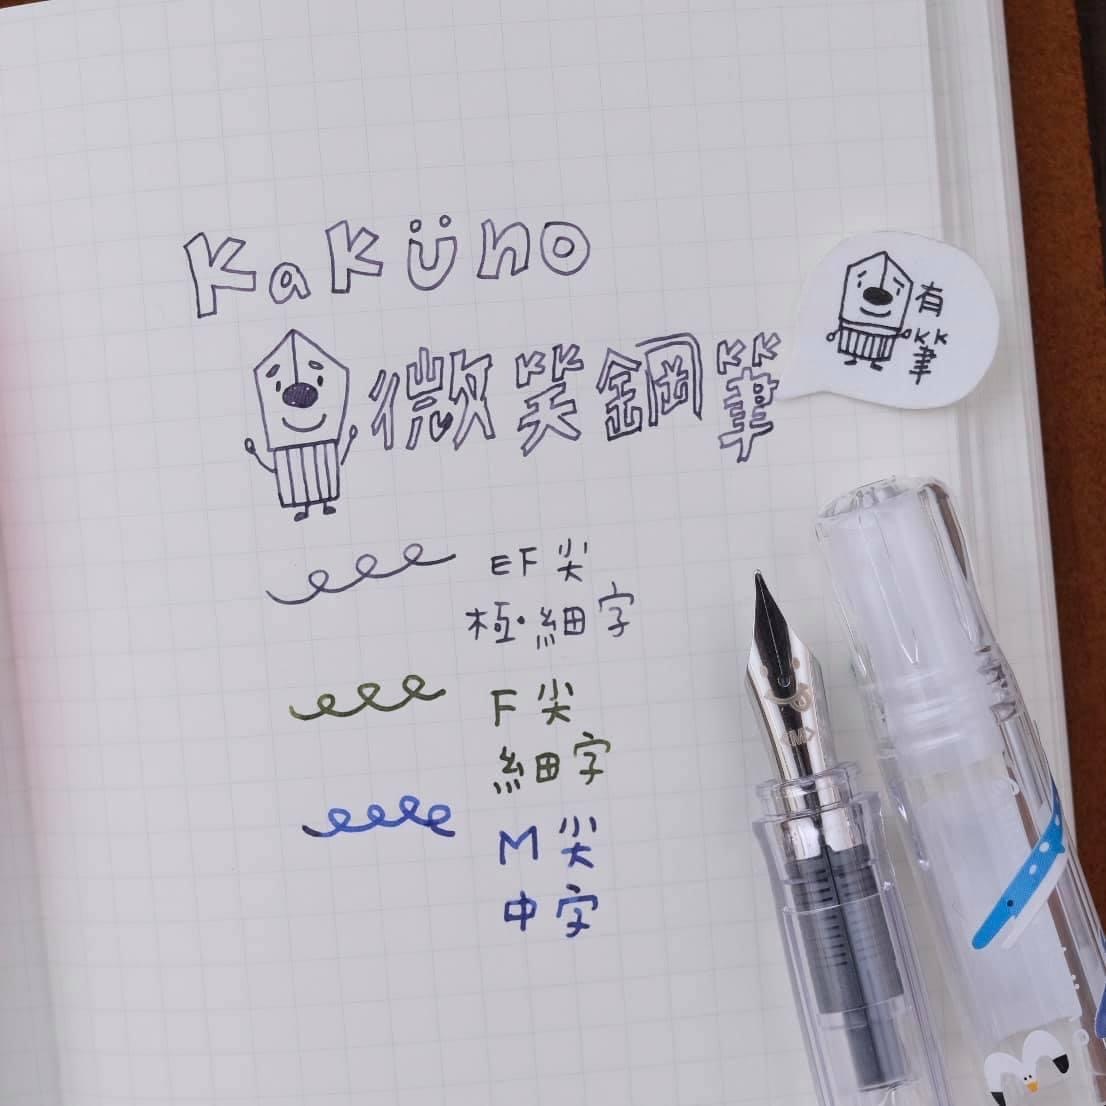 Kaküno
微笑鋼筆
有
筆
EF尖
極・細字
F尖
細字
M尖
中字
<M>